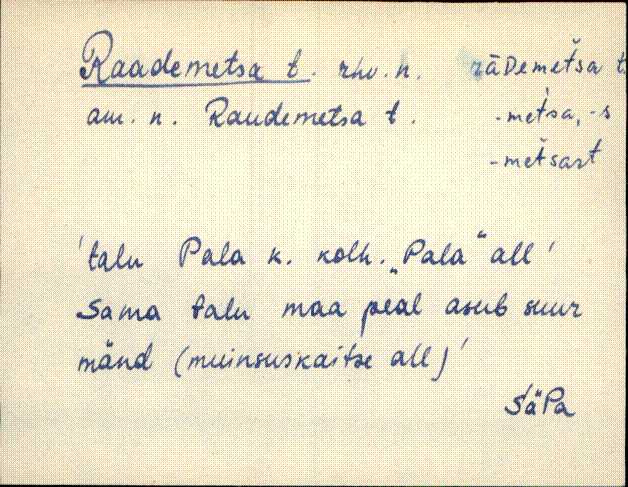 Raademetsa t. rhv. n. rāDemet̆sa t.
am. n. Raudemetsa t. -met̆sa, -s
-met̆sast
'talu Pala k. kolh. „Pala“ all'
Sama talu maa peal asub suur
mänd (muinsuskaitse all)'
SäPa